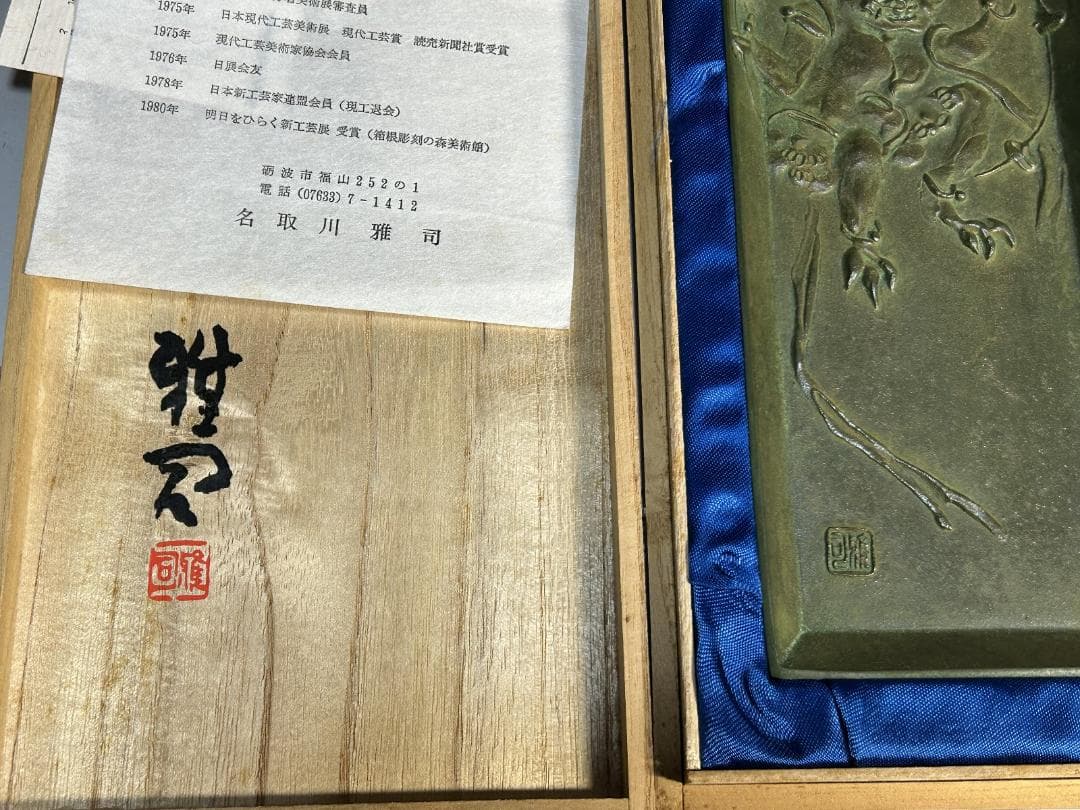 美術展審査員
1975年 日本現代工芸美術展 現代工芸賞 読売新聞社賞受賞
1975年 現代工芸美術家協会会員
1976年 日展会友
1978年 日本新工芸家連盟会員(現工退会)
1980年 明日をひらく新工芸展 受賞(箱根彫刻の森美術館)
砺波市福山252の1
電話(07633)7-1412
名取川雅司
雅司
雅司
雅司